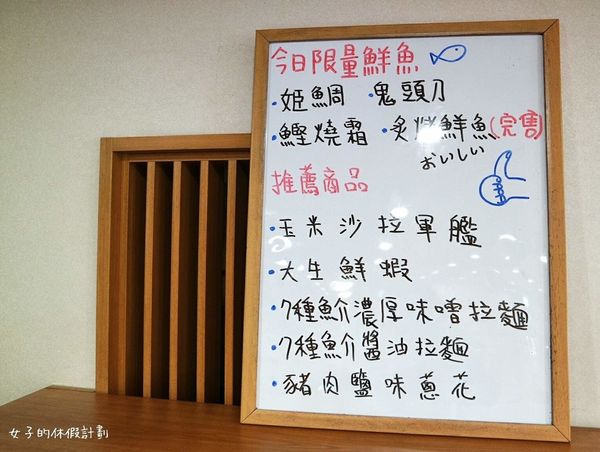 今日限量鮮魚
·姬鯛 ·鬼頭刀
·鰹燒霜 ·炙燒鮮魚(完售)
おいしい
推薦商品
·玉米沙拉軍艦
·大生鮮蝦
·7種魚介濃厚味噌拉麵
·7種魚介醬油拉麵
·豬肉鹽味蔥花
女子的休假計劃